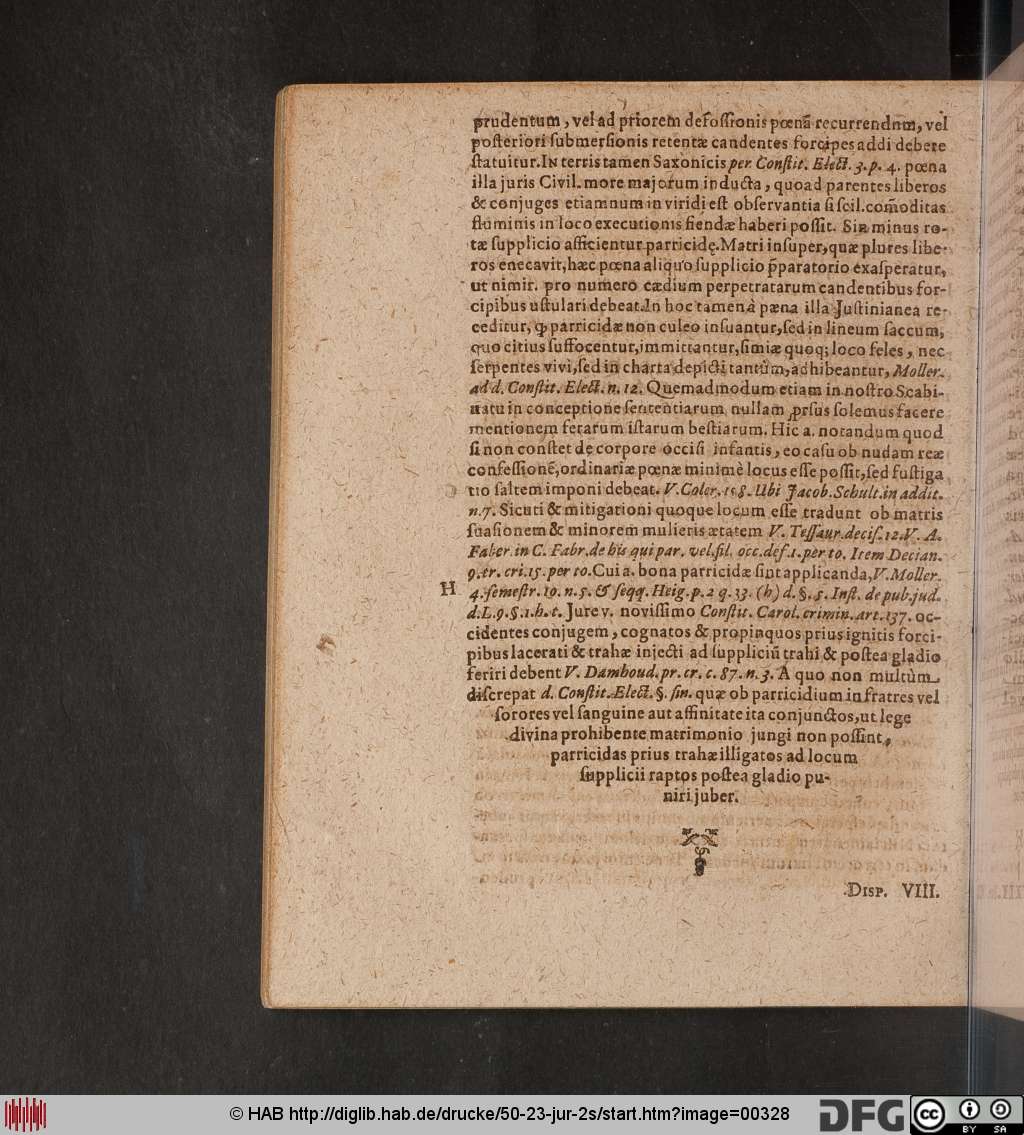 prudentum, vel ad priorem defossionis pœnã recurrendum, vel
posteriori submersionis retentæ candentes forcipes addi debere
statuitur. IN terris tamen Saxonicis per Constit. Elect. 3. p. 4. pœna
illa juris Civil. more majorum inducta, quoad parentes liberos
& conjuges etiamnum in viridi est observantia si scil. com̃oditas
fluminis in loco executionis fiendæ haberi possit. Sin minus ro-
tæ supplicio afficientur parricidę. Matri insuper, quæ plures libe-
ros enecavit, hæc pœna aliquo supplicio p̃paratorio exasperatur,
ut nimir. pro numero cædium perpetratarum candentibus for-
cipibus ustulari debeat. In hoc tamen à pæna illa Justinianea re-
ceditur, ꝙ parricidæ non culeo insuantur, sed in lineum saccum,
quo citius suffocentur, immittantur, simiæ quoq; loco feles, nec
serpentes vivi, sed in charta depicti tantùm, adhibeantur, Moller.
ad d. Constit. Elect. n. 12. Quemadmodum etiam in nostro Scabi-
natu in conceptione sententiarum nullam ꝓrsus solemus facere
mentionem ferarum istarum bestiarum. Hic a. notandum quod
si non constet de corpore occisi infantis, eo casu ob nudam reæ
confessionẽ, ordinariæ pœnæ minimè locus esse possit, sed fustiga
tio saltem imponi debeat. V. Coler. 158. Ubi Jacob. Schult. in addit.
n. 7. Sicuti & mitigationi quoque locum esse tradunt ob matris
suasionem & minorem mulieris ætatem V. Tessaur. decis. 12. V. A.
Faber. in C. Fabr. de his qui par. vel. fil. occ. def. 1. per to. Item Decian.
9. tr. cri. 15. per to. Cui a. bona parricidæ sint applicanda, V. Moller.
H 4. semestr. 19. n. 5. & seqq. Heig. p. 2 q. 33. (h) d. §. 5. Inst. de pub. jud.
d. L. 9. §. 1. h. t. Jure v. novissimo Constit. Carol. crimin. art. 137. oc-
cidentes conjugem, cognatos & propinquos prius ignitis forci-
pibus lacerati & trahæ injecti ad suppliciũ trahi & postea gladio
feriri debent V. Damhoud. pr. cr. c. 87. n. 3. A quo non multùm
discrepat d. Constit. Elect. §. fin. quæ ob parricidium in fratres vel
sorores vel sanguine aut affinitate ita conjunctos, ut lege
divina prohibente matrimonio jungi non possint,
parricidas prius trahæ illigatos ad locum
supplicii raptos postea gladio pu-
niri jubet.
DISP. VIII.
© HAB http://diglib.hab.de/drucke/50-23-jur-2s/start.htm?image=00328
DFG
cc BY SA